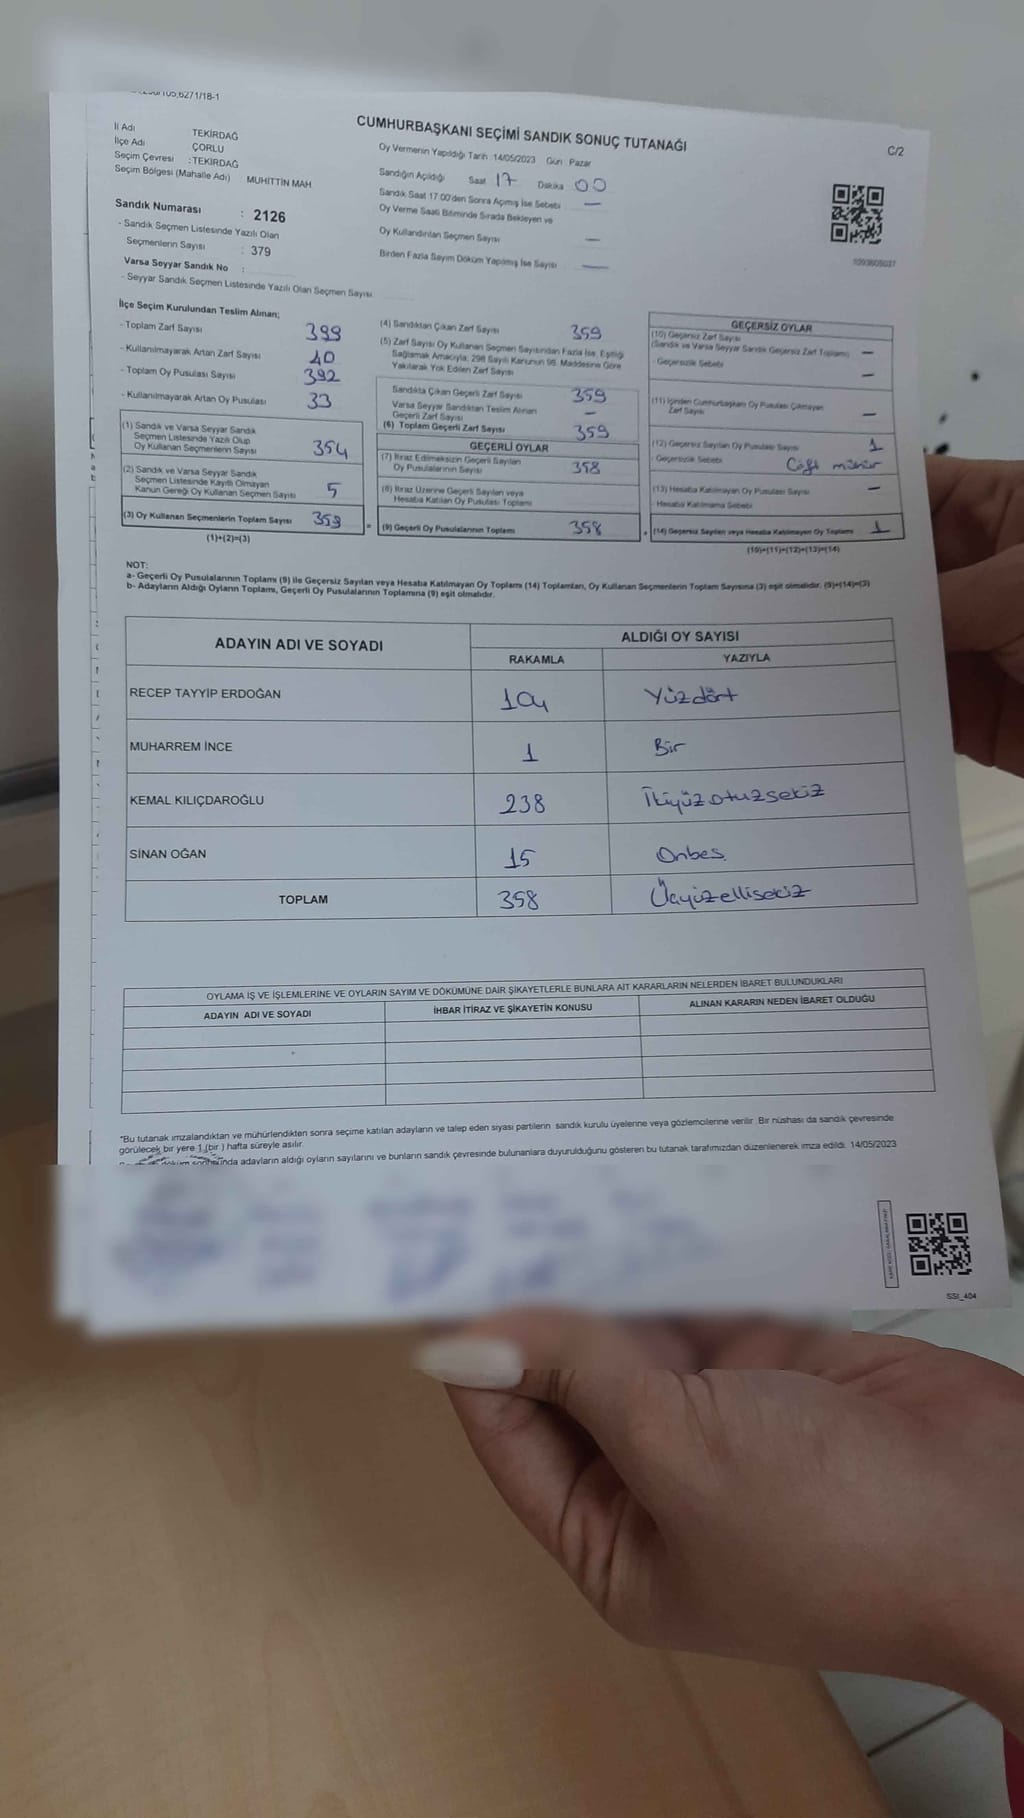 CUMHURBAŞKANI SEÇİMİ SANDIK SONUÇ TUTANAĞI
C/2
İl Adı TEKİRDAĞ
İlçe Adı ÇORLU
Seçim Çevresi : TEKİRDAĞ
Seçim Bölgesi (Mahalle Adı) MUHİTTİN MAH
Sandık Numarası : 2126
- Sandık Seçmen Listesinde Yazılı Olan
Seçmenlerin Sayısı : 379
Varsa Seyyar Sandık No :
- Seyyar Sandık Seçmen Listesinde Yazılı Olan Seçmen Sayısı
Oy Vermenin Yapıldığı Tarih : 14/05/2023 Gün : Pazar
Sandığın Açıldığı Saat 17 Dakika 00
Sandık Saat 17.00'den Sonra Açılmış İse Sebebi —
Oy Verme Saati Bitiminde Sırada Bekleyen ve
Oy Kullandırılan Seçmen Sayısı —
Birden Fazla Sayım Döküm Yapılmış İse Sayısı —
İlçe Seçim Kurulundan Teslim Alınan;
- Toplam Zarf Sayısı 399
- Kullanılmayarak Artan Zarf Sayısı 40
- Toplam Oy Pusulası Sayısı 392
- Kullanılmayarak Artan Oy Pusulası 33
(1) Sandık ve Varsa Seyyar Sandık
Seçmen Listesinde Yazılı Olup
Oy Kullanan Seçmenlerin Sayısı 354
(2) Sandık ve Varsa Seyyar Sandık
Seçmen Listesinde Kayıtlı Olmayan
Kanun Gereği Oy Kullanan Seçmen Sayısı 5
(3) Oy Kullanan Seçmenlerin Toplam Sayısı 359
(1)+(2)=(3)
(4) Sandıktan Çıkan Zarf Sayısı 359
(5) Zarf Sayısı Oy Kullanan Seçmen Sayısından Fazla İse, Eşitliği
Sağlamak Amacıyla; 298 Sayılı Kanunun 98. Maddesine Göre
Yakılarak Yok Edilen Zarf Sayısı
Sandıkta Çıkan Geçerli Zarf Sayısı 359
Varsa Seyyar Sandıktan Teslim Alınan
Geçerli Zarf Sayısı —
(6) Toplam Geçerli Zarf Sayısı 359
GEÇERLİ OYLAR
(7) İtiraz Edilmeksizin Geçerli Sayılan
Oy Pusulalarının Sayısı 358
(8) İtiraz Üzerine Geçerli Sayılan veya
Hesaba Katılan Oy Pusulası Toplamı
= (9) Geçerli Oy Pusulalarının Toplamı 358
GEÇERSİZ OYLAR
(10) Geçersiz Zarf Sayısı
(Sandık ve Varsa Seyyar Sandık Geçersiz Zarf Toplamı) —
- Geçersizlik Sebebi —
(11) İçinden Cumhurbaşkanı Oy Pusulası Çıkmayan
Zarf Sayısı —
(12) Geçersiz Sayılan Oy Pusulası Sayısı 1
- Geçersizlik Sebebi Çift mühür
(13) Hesaba Katılmayan Oy Pusulası Sayısı —
- Hesaba Katılmama Sebebi
(14) Geçersiz Sayılan veya Hesaba Katılmayan Oy Toplamı 1
(10)+(11)+(12)+(13)=(14)
NOT:
a- Geçerli Oy Pusulalarının Toplamı (9) ile Geçersiz Sayılan veya Hesaba Katılmayan Oy Toplamı (14) Toplamları, Oy Kullanan Seçmenlerin Toplam Sayısına (3) eşit olmalıdır. (9)+(14)=(3)
b- Adayların Aldığı Oyların Toplamı, Geçerli Oy Pusulalarının Toplamına (9) eşit olmalıdır.
ADAYIN ADI VE SOYADI ALDIĞI OY SAYISI
RAKAMLA YAZIYLA
RECEP TAYYİP ERDOĞAN 104 Yüzdört
MUHARREM İNCE 1 Bir
KEMAL KILIÇDAROĞLU 238 İkiyüzotuzsekiz
SİNAN OĞAN 15 Onbeş
TOPLAM 358 Üçyüzellisekiz
OYLAMA İŞ VE İŞLEMLERİNE VE OYLARIN SAYIM VE DÖKÜMÜNE DAİR ŞİKAYETLERLE BUNLARA AİT KARARLARIN NELERDEN İBARET BULUNDUKLARI
ADAYIN ADI VE SOYADI İHBAR İTİRAZ VE ŞİKAYETİN KONUSU ALINAN KARARIN NEDEN İBARET OLDUĞU
*Bu tutanak imzalandıktan ve mühürlendikten sonra seçime katılan adayların ve talep eden siyasi partilerin sandık kurulu üyelerine veya gözlemcilerine verilir. Bir nüshası da sandık çevresinde
görülecek bir yere 1 (bir ) hafta süreyle asılır.
adayların aldığı oyların sayılarını ve bunların sandık çevresinde bulunanlara duyurulduğunu gösteren bu tutanak tarafımızdan düzenlenerek imza edildi. 14/05/2023
SSI_404